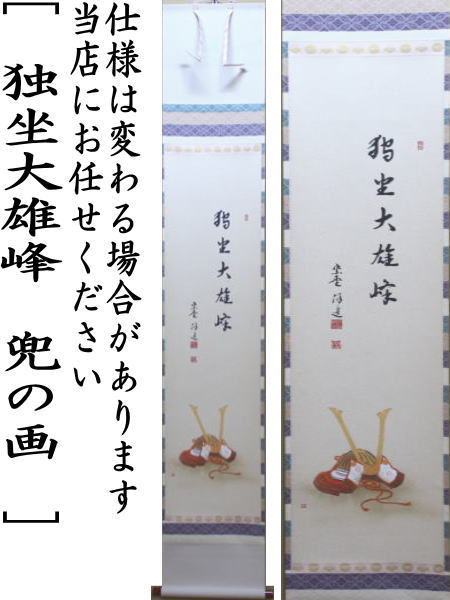 仕様は変わる場合があります
当店にお任せください
[独坐大雄峰 兜の画]
独坐大雄峰
独坐大雄峰